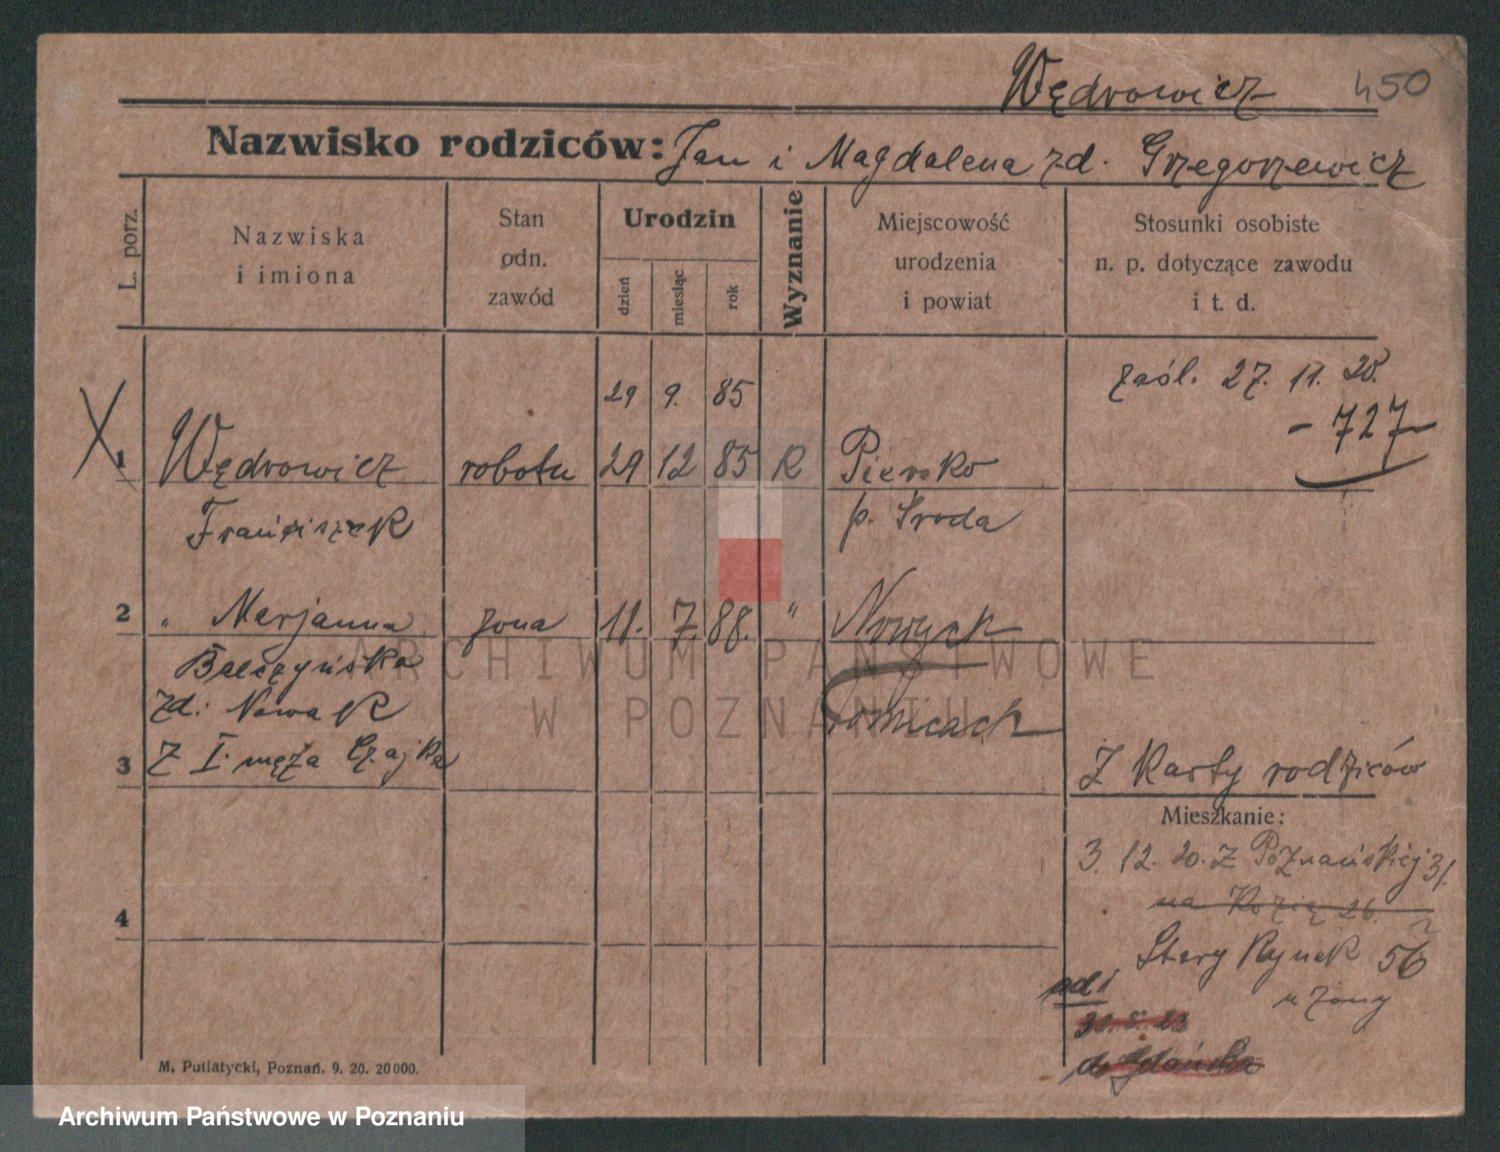 Wędrowicz 450
Nazwisko rodziców: Jan i Magdalena zd. Grzegorzewicz
L. porz.
Nazwiska
i imiona
Stan
odn.
zawód
Urodzin
dzień
miesiąc
rok
Wyznanie
Miejscowość
urodzenia
i powiat
Stosunki osobiste
n. p. dotyczące zawodu
i t. d.
29 9. 85
zaśl. 27. 11. 20.
- 727
1 Wędrowicz robotn 29 12 85 R Piersko
Franciszek p. Sroda
2 " Marjanna żona 11. 7. 88. "
Balczyńska
zd. Nowak
3 Z I. męża Czajka
Z Karty rodziców
Mieszkanie:
3. 12. 20. Z Poznańskiej 31.
na Kozią 26.
Stary Rynek 56
u żony
4
ad 1
30. 5. 23
do Gdańska
M. Putiatycki, Poznań. 9. 20. 20000.
ARCHIWUM PAŃSTWOWE
W POZNANIU
Archiwum Państwowe w Poznaniu